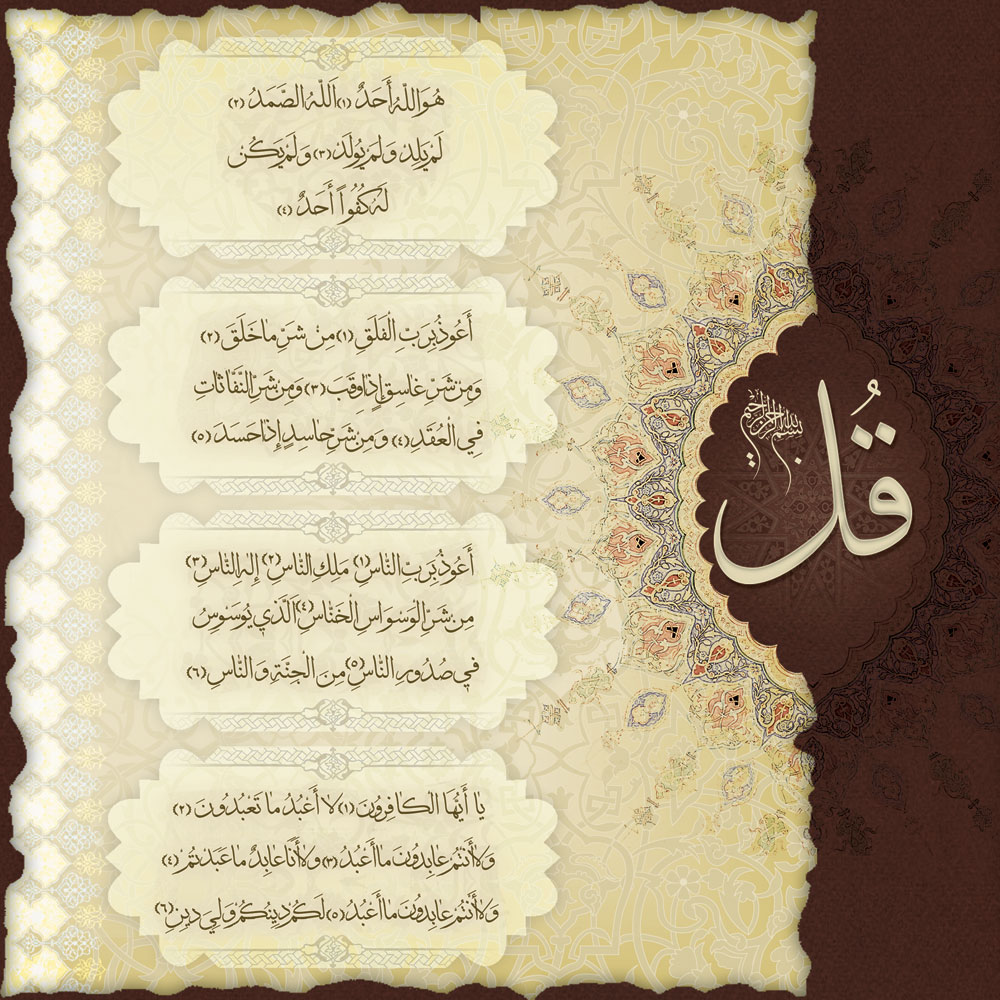 بسم الله الرحمن الرحيم
قُل
هُوَ اللّٰهُ أَحَدٌ (١) اَللّٰهُ الصَّمَدُ (٢)
لَمْ يَلِدْ وَلَمْ يُولَدْ (٣) وَلَمْ يَكُنْ
لَهُ كُفُواً أَحَدٌ (٤)
أَعُوذُ بِرَبِّ الْفَلَقِ (١) مِنْ شَرِّ مٰا خَلَقَ (٢)
وَمِنْ شَرِّ غٰاسِقٍ إِذٰا وَقَبَ (٣) وَمِنْ شَرِّ النَّفّٰاثٰاتِ
فِي الْعُقَدِ (٤) وَمِنْ شَرِّ حٰاسِدٍ إِذٰا حَسَدَ (٥)
أَعُوذُ بِرَبِّ النّٰاسِ (١) مَلِكِ النّٰاسِ (٢) إِلٰهِ النّٰاسِ (٣)
مِنْ شَرِّ الْوَسْوٰاسِ الْخَنّٰاسِ (٤) اَلَّذِي يُوَسْوِسُ
فِي صُدُورِ النّٰاسِ (٥) مِنَ الْجِنَّةِ وَالنّٰاسِ (٦)
يٰا أَيُّهَا الْكٰافِرُونَ (١) لاٰ أَعْبُدُ مٰا تَعْبُدُونَ (٢)
وَلاٰ أَنْتُمْ عٰابِدُونَ مٰا أَعْبُدُ (٣) وَلاٰ أَنٰا عٰابِدٌ مٰا عَبَدْتُمْ (٤)
وَلاٰ أَنْتُمْ عٰابِدُونَ مٰا أَعْبُدُ (٥) لَكُمْ دِينُكُمْ وَلِيَ دِينِ (٦)